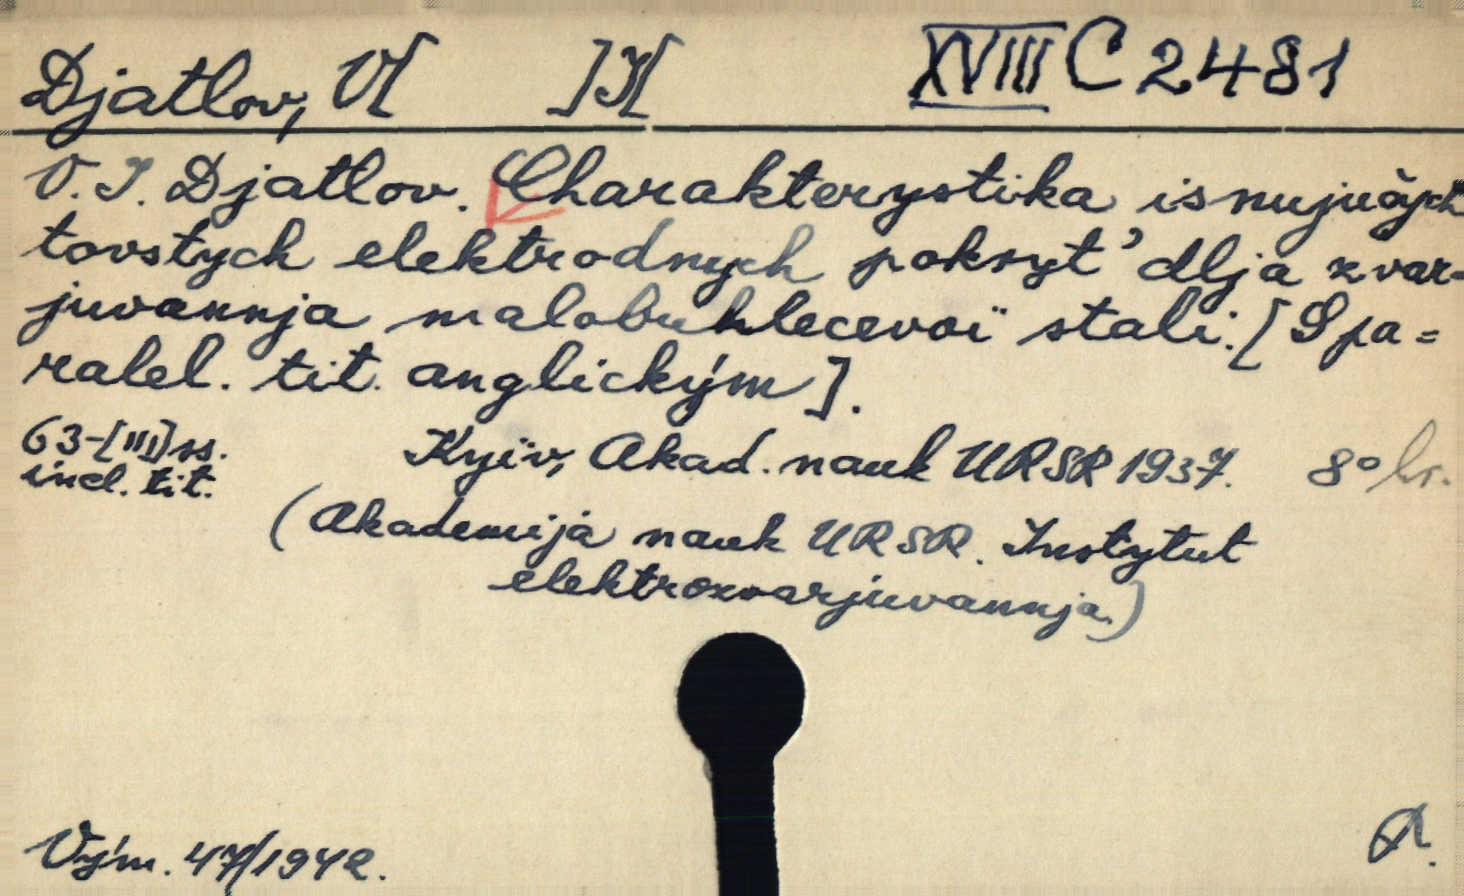 Djatlov, V[ ]I[ XVIII C 2481
V. I. Djatlov. Charakterystika isnujučych
tovstych elektrodnych pokryt' dlja zvar-
juvannja malobuhlecevoï stali. [S pa=
ralel. tit. anglickým].
63-[III] ss. Kyïv, Akad. nauk URSR 1937. 8° br.
incl. tit.
(Akademija nauk URSR. Instytut
elektrozvarjuvannja.)
Vým. 47/1942.